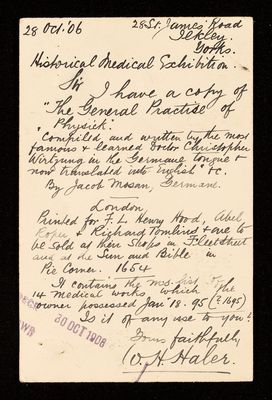 28 Oct. '06
28 St. James Road
Ilkley.
Yorks.
Historical Medical Exhibition.
Sir
I have a copy of
"The General Practise of
Physick.
Compiled and written by the most
famous & learned Doctor Christopher
Wirtzung in the Germane tongue &
now translated into English" &c.
By Jacob Mosan, Germane.
London
Printed for F. L. Henry Hood, Abel
Roper & Richard Tomlins & are to
be Sold at their Shops in Fleet Street
and at the Sun and Bible in
Pie Corner. 1654
It contains the mss. list of the
14 medical works which
owner possessed Jan 18. 95 (? 1695)
Is it of any use to you?
Yours faithfully
W. H. Haler.
30 OCT 1906